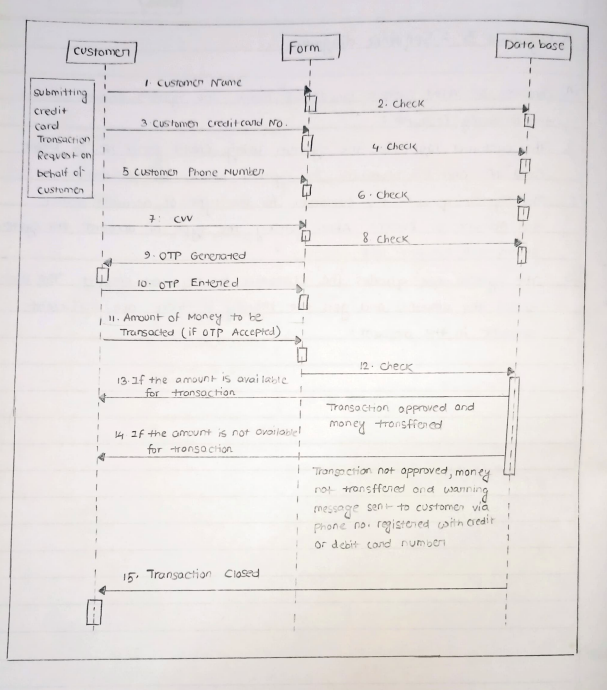 Customer
Form
Data base
Submitting
credit
card
Transaction
Request on
behalf of
customer
1. Customer Name
2. Check
3. Customer credit card No.
4 Check
5 Customer Phone Number
6. Check
7. CVV
8 Check
9. OTP Generated
10. OTP Entered
11. Amount of Money to be
Transacted (if OTP Accepted)
12. Check
13. If the amount is available
for transaction
Transaction approved and
money transffered
14 If the amount is not available
for transaction
Transaction not approved, money
not transffered and warning
message sent to customer via
phone no. registered with credit
or debit card number
15. Transaction Closed